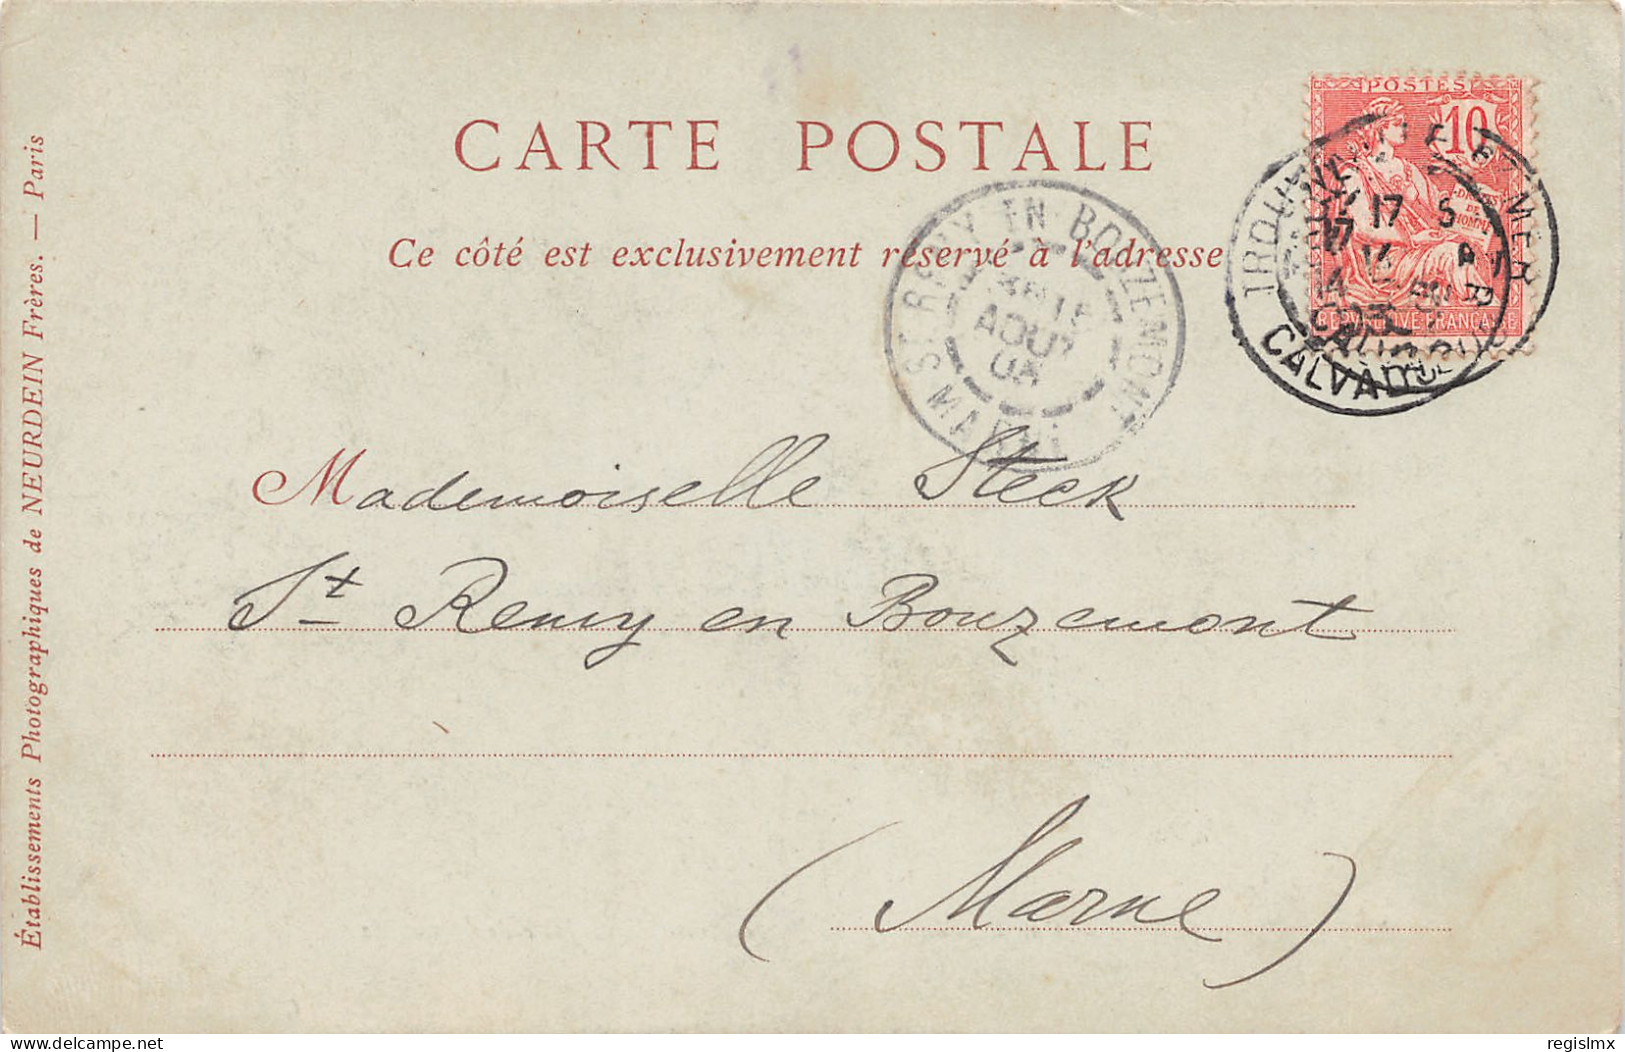 CARTE POSTALE
Ce côté est exclusivement réservé à l'adresse
POSTES
10
DROITS
DE
L'HOMME
REPUBLIQUE FRANCAISE
17 5
CALVADOS
ST. REMY EN BOUZEMONT
15
AOUT
MARNE
Mademoiselle Steck
St Remy en Bouzemont
(Marne)
Établissements Photographiques de NEURDEIN Frères. — Paris
delcampe.net
regislmx